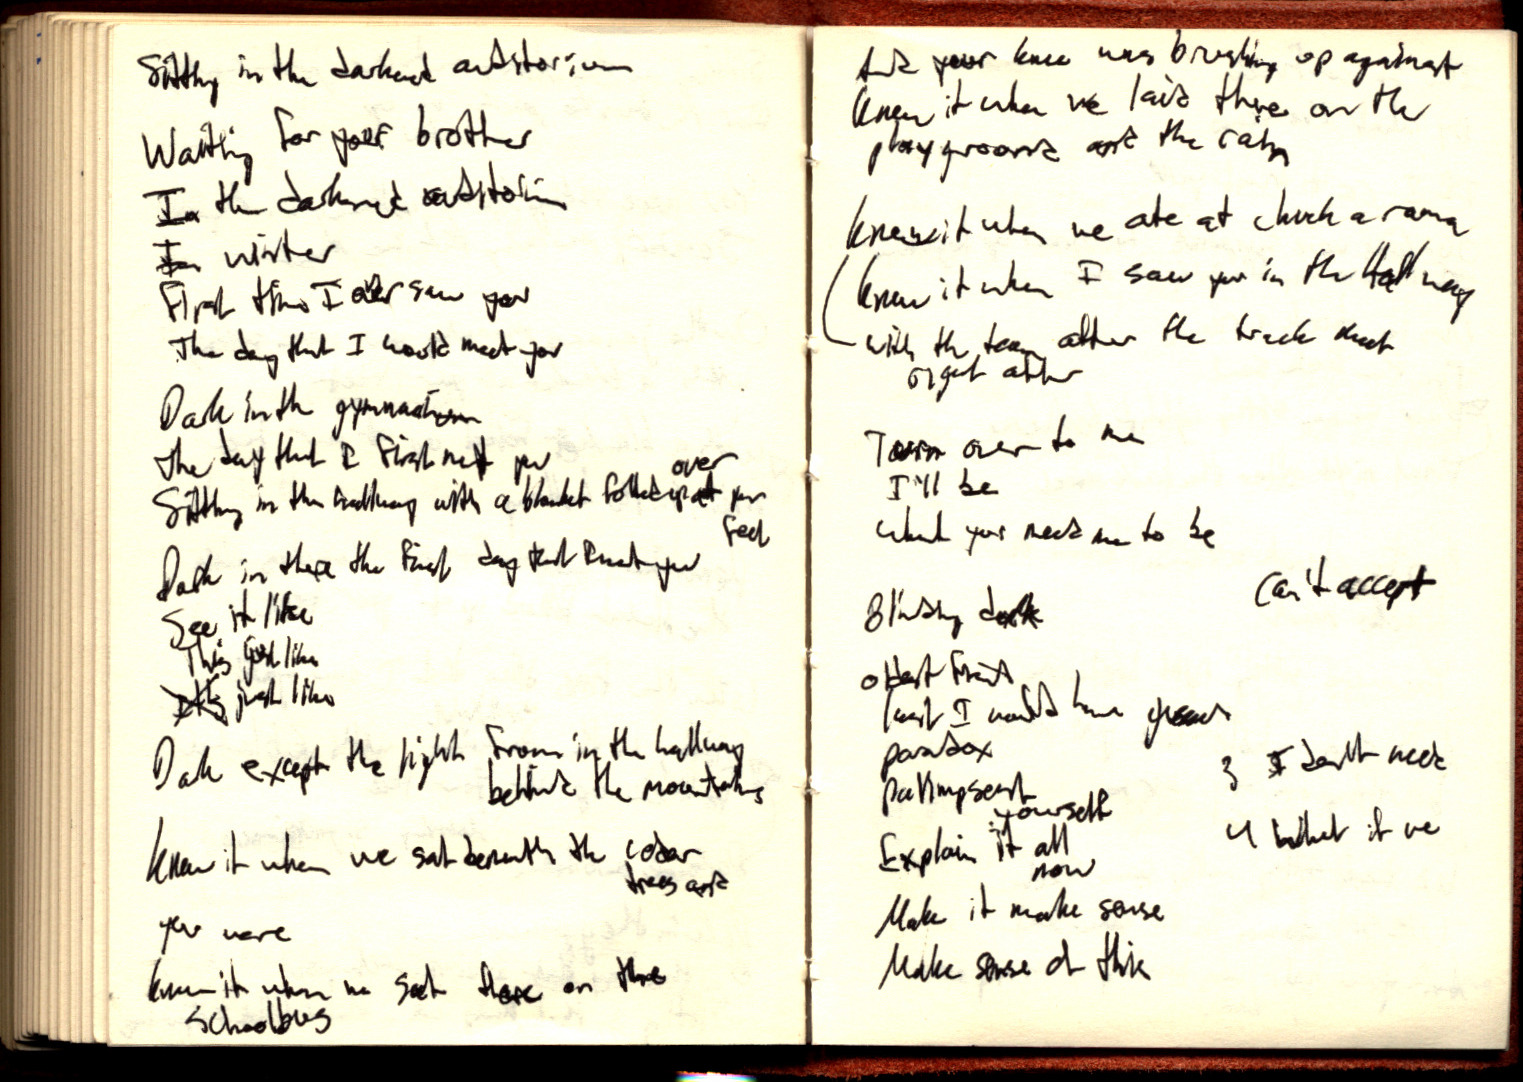 Sitting in the darkened auditorium
Waiting for your brother
In the darkened auditorium
In winter
First time I ever saw you
The day that I would meet you
Dark in the gymnasium
The day that I first met you
over
Sitting in the hallway with a blanket folded up at your
feet
Dark in there the first day that I met you
See it like
This just like
It's just like
Dark except the light from in the hallway
behind the mountains
Knew it when we sat beneath the cedar
trees and
you were
Knew it when we sat there on the
schoolbus
And your knee was brushing up against
Knew it when we laid there on the
playground and the rain
Knew it when we ate at chuck a rama
Knew it when I saw you in the Hallway
with the team after the track meet
right after
Turn over to me
I'll be
what you need me to be
Can't accept
Blinding dark
oldest friend
last I would have
paradox
3 I don't need
palimpsest
yourself
4 What if we
Explain it all
now
Make it make sense
Make sense of this